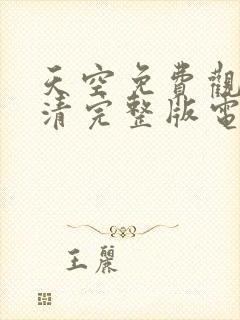 天空免費觀
清完整版電
王麗